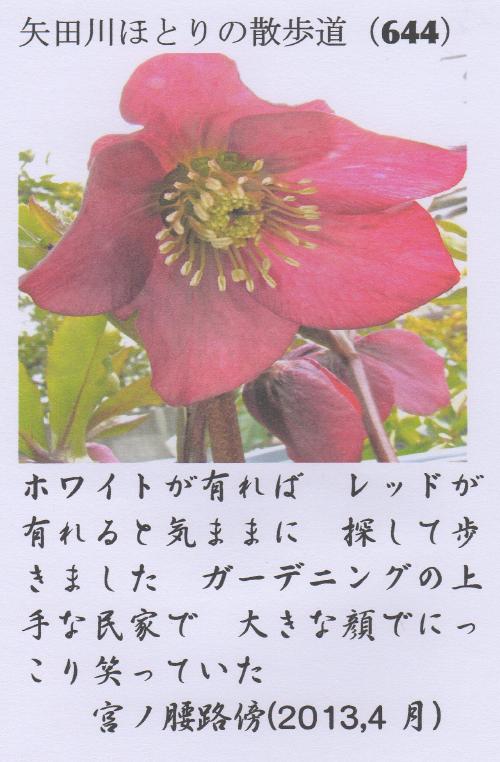 矢田川ほとりの散歩道（644）
ホワイトが有れば　レッドが
有れると気ままに　探して歩
きました　ガーデニングの上
手な民家で　大きな顔でにっ
こり笑っていた
宮ノ腰路傍(2013,4 月)